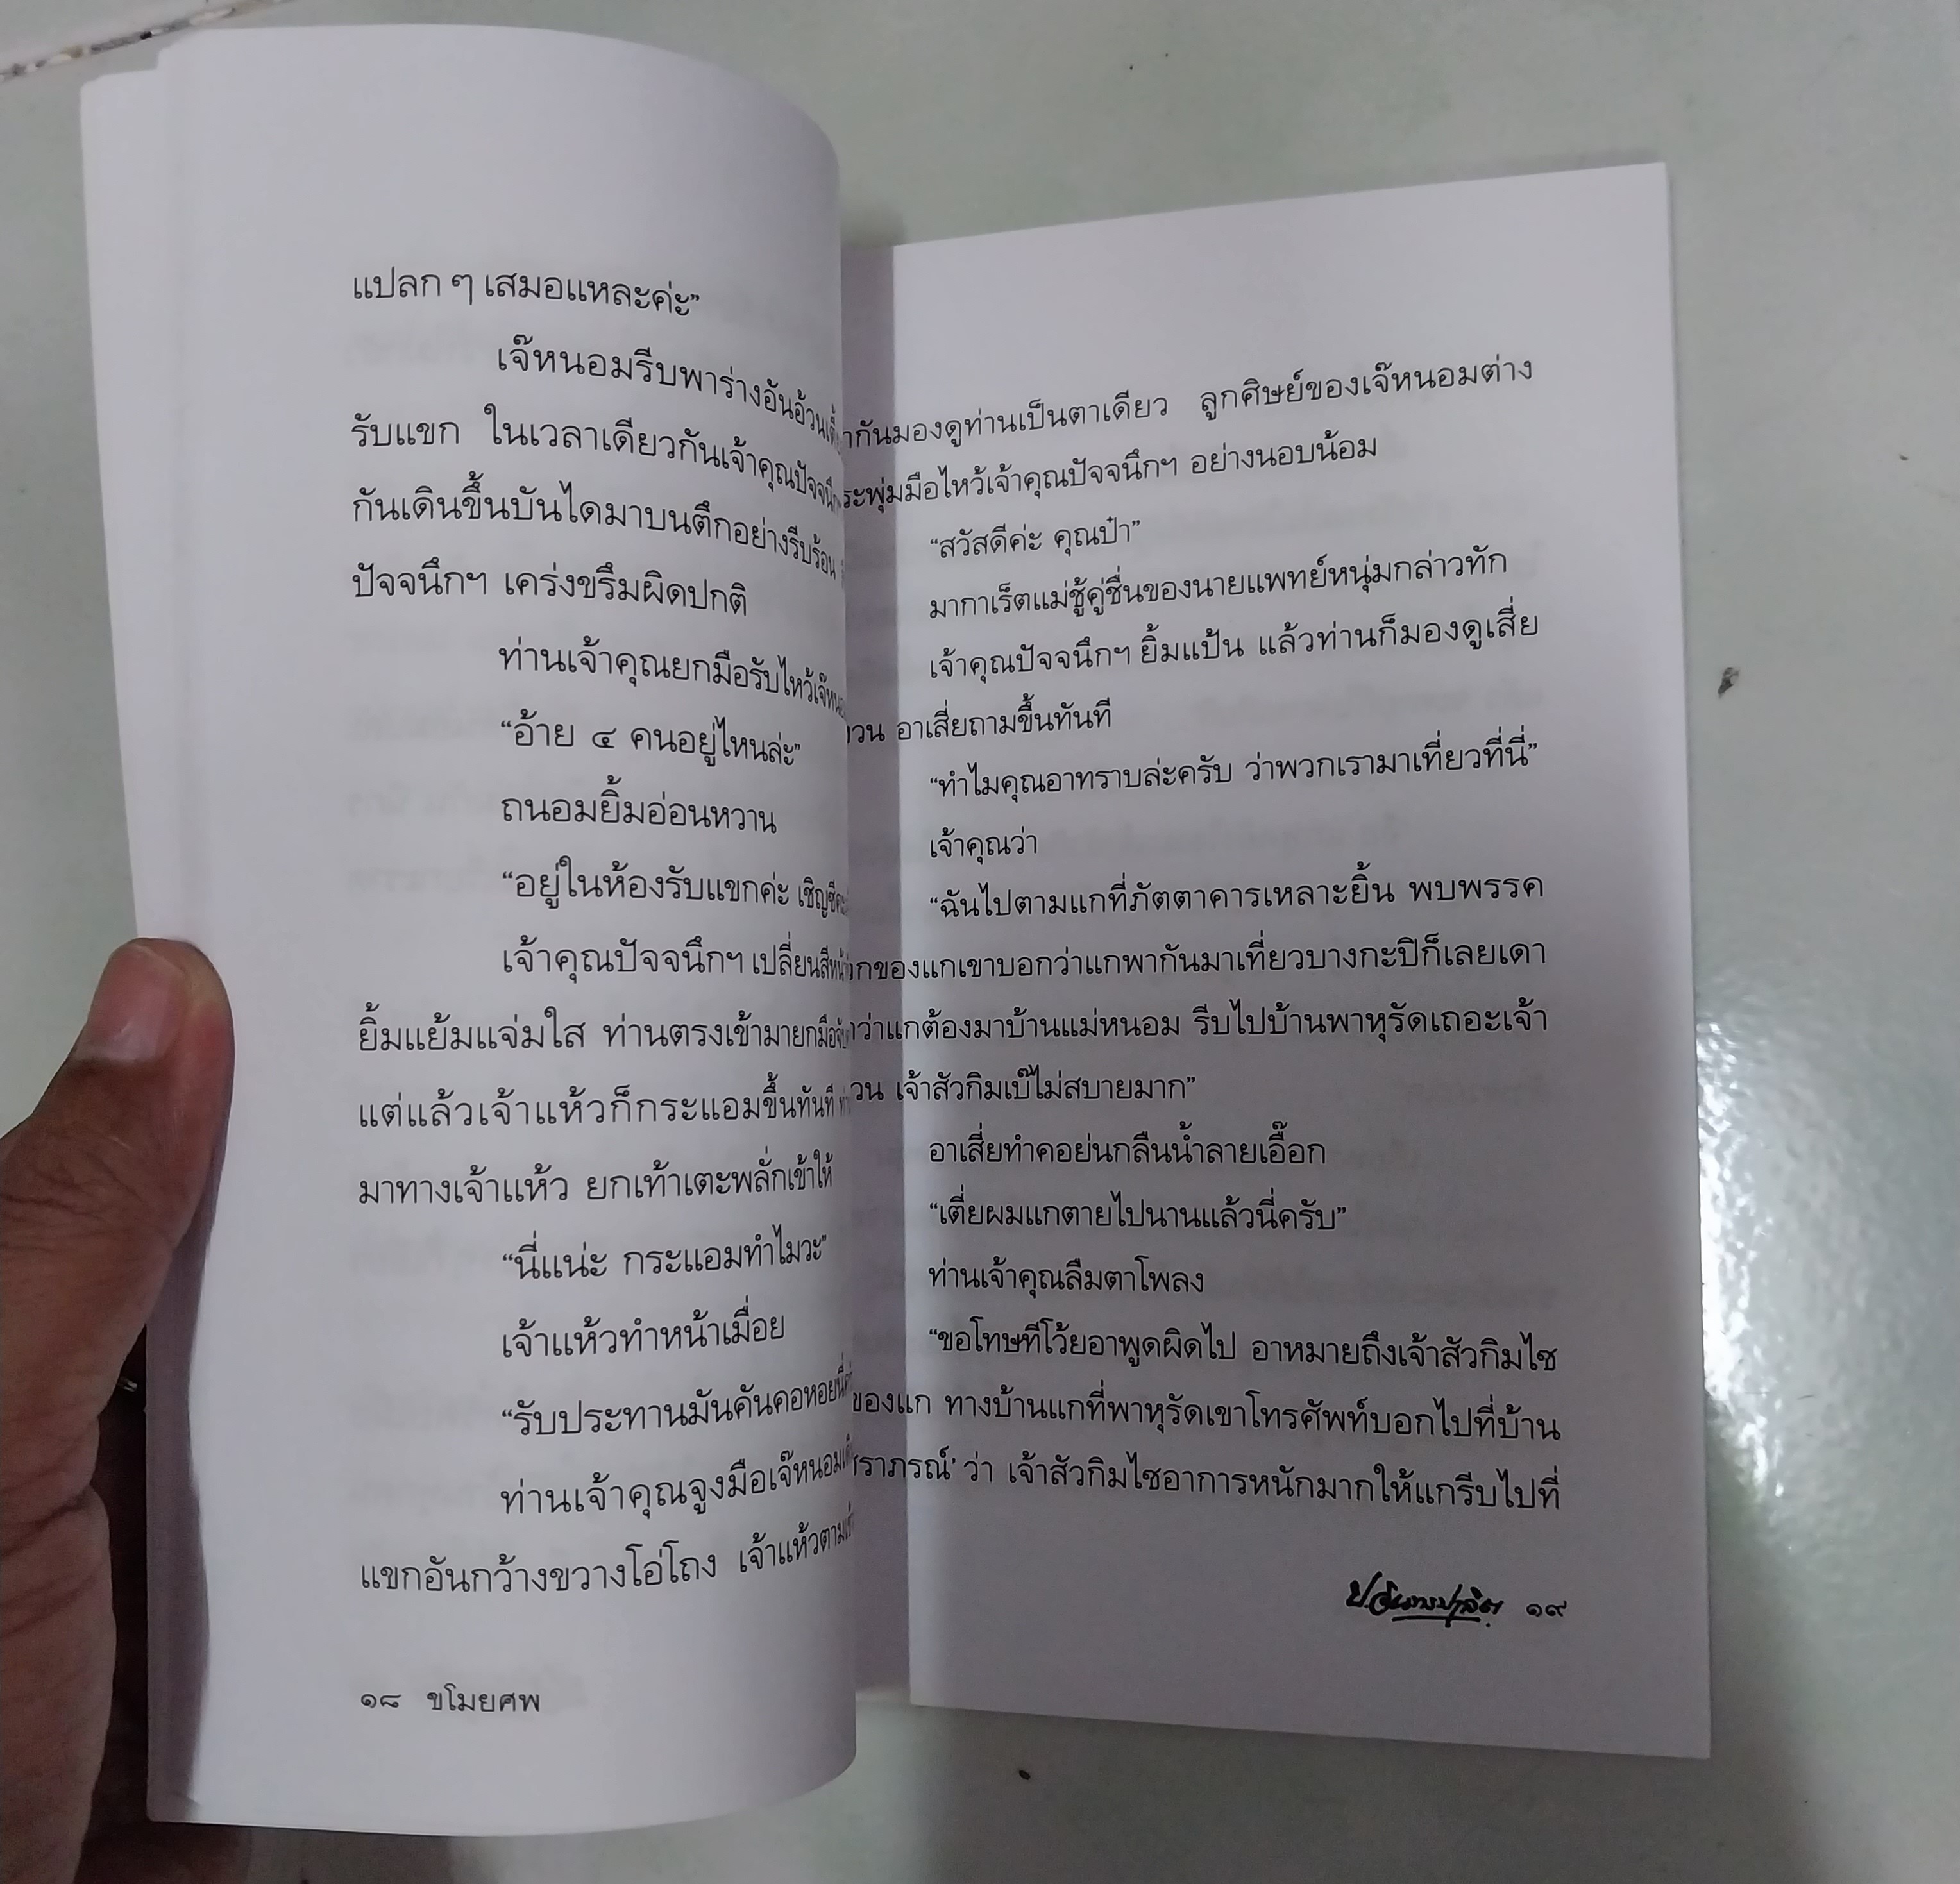 แปลก ๆ เสมอแหละค่ะ”
เจ๊หนอมรีบพาร่างอันอ้วน
รับแขก ในเวลาเดียวกันเจ้าคุณปัจจนึก
กันเดินขึ้นบันไดมาบนตึกอย่างรีบร้อน
ปัจจนึกฯ เคร่งขรึมผิดปกติ
ท่านเจ้าคุณยกมือรับไหว้เจ๊หนอม
“อ้าย ๔ คนอยู่ไหนล่ะ”
ถนอมยิ้มอ่อนหวาน
“อยู่ในห้องรับแขกค่ะ เชิญซีคะ
เจ้าคุณปัจจนึกฯ เปลี่ยนสีหน้า
ยิ้มแย้มแจ่มใส ท่านตรงเข้ามายกมือจับ
แต่แล้วเจ้าแห้วก็กระแอมขึ้นทันที
มาทางเจ้าแห้ว ยกเท้าเตะพลั่กเข้าให้
“นี่แน่ะ กระแอมทำไมวะ”
เจ้าแห้วทำหน้าเมื่อย
“รับประทานมันคันคอหอยนี่
ท่านเจ้าคุณจูงมือเจ๊หนอม
แขกอันกว้างขวางโอ่โถง เจ้าแห้วตาม
๑๘ ขโมยศพ
กันมองดูท่านเป็นตาเดียว ลูกศิษย์ของเจ๊หนอมต่าง
พุ่มมือไหว้เจ้าคุณปัจจนึกฯ อย่างนอบน้อม
“สวัสดีค่ะ คุณป๋า”
มากาเร็ตแม่ชู้คู่ชื่นของนายแพทย์หนุ่มกล่าวทัก
เจ้าคุณปัจจนึกฯ ยิ้มแป้น แล้วท่านก็มองดูเสี่ย
อาเสี่ยถามขึ้นทันที
“ทำไมคุณอาทราบล่ะครับ ว่าพวกเรามาเที่ยวที่นี่”
เจ้าคุณว่า
“ฉันไปตามแกที่ภัตตาคารเหลาะยิ้น พบพรรค
ของแกเขาบอกว่าแกพากันมาเที่ยวบางกะปิก็เลยเดา
ว่าแกต้องมาบ้านแม่หนอม รีบไปบ้านพาหุรัดเถอะเจ้า
เจ้าสัวกิมเบ๊ไม่สบายมาก”
อาเสี่ยทำคอย่นกลืนน้ำลายเอื๊อก
“เตี่ยผมแกตายไปนานแล้วนี่ครับ”
ท่านเจ้าคุณลืมตาโพลง
“ขอโทษทีโว้ยอาพูดผิดไป อาหมายถึงเจ้าสัวกิมไซ
ของแก ทางบ้านแกที่พาหุรัดเขาโทรศัพท์บอกไปที่บ้าน
ราภรณ์’ ว่า เจ้าสัวกิมไซอาการหนักมากให้แกรีบไปที่
ป.อินทรปาลิต ๑๙